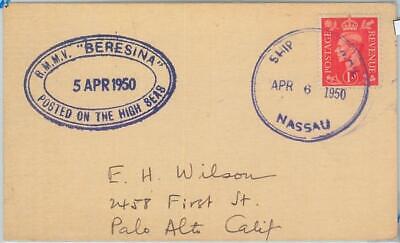 R.M.M.V. "BERESINA"
5 APR 1950
POSTED ON THE HIGH SEAS
SHIP
APR 6 1950
NASSAU
POSTAGE
REVENUE
1D
E. H. Wilson
2458 First St.
Palo Alto Calif